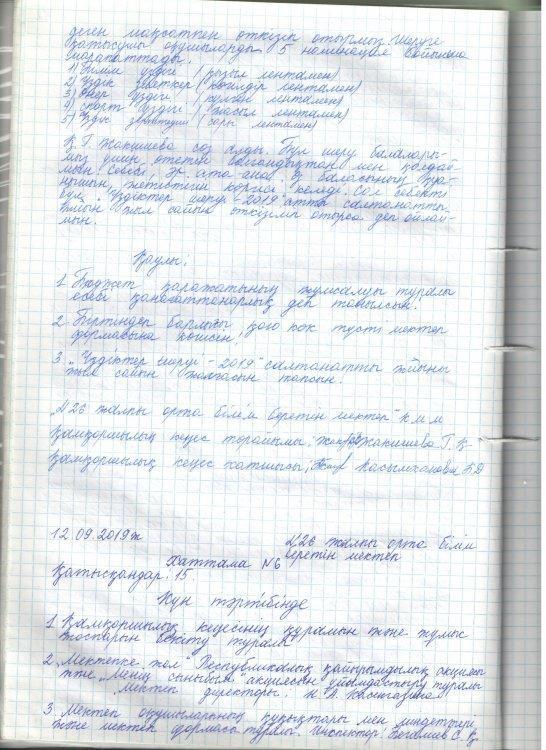 деген мақсатпен өткізіп отырмыз. Шеруге
қатысушы оқушыларды 5 номинация бойынша
марапаттады.
1) Білім үздігі (қызыл лентамен)
2) Үздік әлеуметкер (көгілдір лентамен)
3) Өнер үздігі (күлгін лентамен)
4) Спорт үздігі (жасыл лентамен)
5) Үздік (сары лентамен)
Қ. Г. Жакишева сөз алды. Бұл шеру балалары-
мыз үшін өтетін болғандықтан мен қолдай-
мын. Себебі, әр ата-ана өз баласының қуа-
нышын, жетістігін көргісі келеді. Сол себепті
бұл "Үздіктер шеруі - 2019" атты салтанатты
жиын жыл сайын өткізіліп отырса деп ойлай-
мын.
Қаулы:
1. Бюджет қаражатының жұмсалуы туралы
есебі қанағаттанарлық деп табылсын.
2. Біртіндеп барлығы қою көк түсті мектеп
формасына көшсін.
3. "Үздіктер шеруі - 2019" салтанатты жиыны
жыл сайын жалғасын тапсын.
"№26 жалпы орта білім беретін мектеп" КММ
Қамқоршылық кеңес төрайымы: Жакишева Г. Қ
Қамқоршылық кеңес хатшысы: Касымханова Б.Д
12.09.2019ж №26 жалпы орта білім
беретін мектеп
Хаттама №6
Қатысқандар: 15.
Күн тәртібінде
1. Қамқоршылық кеңесінің құрамын және жұмыс
жоспарын бекіту туралы
2. "Мектепке жол" Республикалық қайырымдылық акциясы
және "Менің сыныбым" акциясын ұйымдастыру туралы
Мектеп директоры: Н. А.
3. Мектеп оқушыларының құқықтары мен міндеттері
және мектеп формасы туралы. Инспектор: С. Қ.